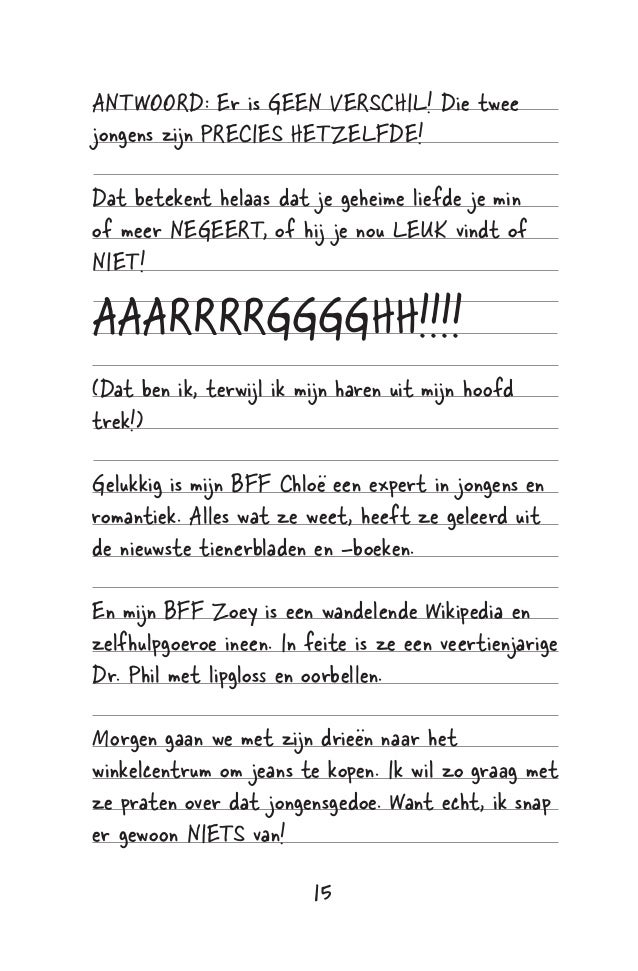 ANTWOORD: Er is GEEN VERSCHIL! Die twee
jongens zijn PRECIES HETZELFDE!
Dat betekent helaas dat je geheime liefde je min
of meer NEGEERT, of hij je nou LEUK vindt of
NIET!
AAARRRRGGGGHH!!!!
(Dat ben ik, terwijl ik mijn haren uit mijn hoofd
trek!)
Gelukkig is mijn BFF Chloë een expert in jongens en
romantiek. Alles wat ze weet, heeft ze geleerd uit
de nieuwste tienerbladen en –boeken.
En mijn BFF Zoey is een wandelende Wikipedia en
zelfhulpgoeroe ineen. In feite is ze een veertienjarige
Dr. Phil met lipgloss en oorbellen.
Morgen gaan we met zijn drieën naar het
winkelcentrum om jeans te kopen. Ik wil zo graag met
ze praten over dat jongensgedoe. Want echt, ik snap
er gewoon NIETS van!
15